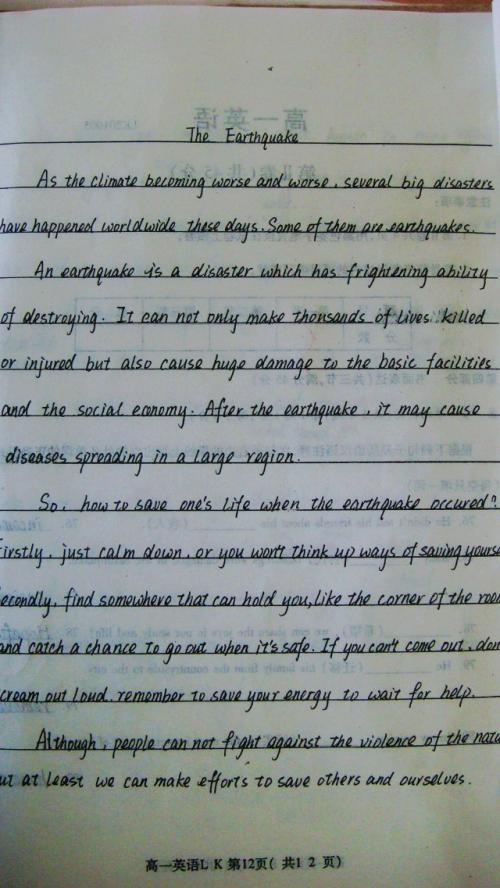 The Earthquake
As the climate becoming worse and worse, several big disasters
have happened worldwide these days. Some of them are earthquakes.
An earthquake is a disaster which has frightening ability
of destroying. It can not only make thousands of lives killed
or injured but also cause huge damage to the basic facilities
and the social economy. After the earthquake, it may cause
diseases spreading in a large region.
So, how to save one's life when the earthquake occured?
Firstly, just calm down, or you won't think up ways of saving yourse
Secondly, find somewhere that can hold you, like the corner of the room
and catch a chance to go out when it's safe. If you can't come out, don
cream out loud, remember to save your energy to wait for help.
Although, people can not fight against the violence of the natu
ut at least we can make efforts to save others and ourselves.
高一英语L K 第12页( 共1 2 页)